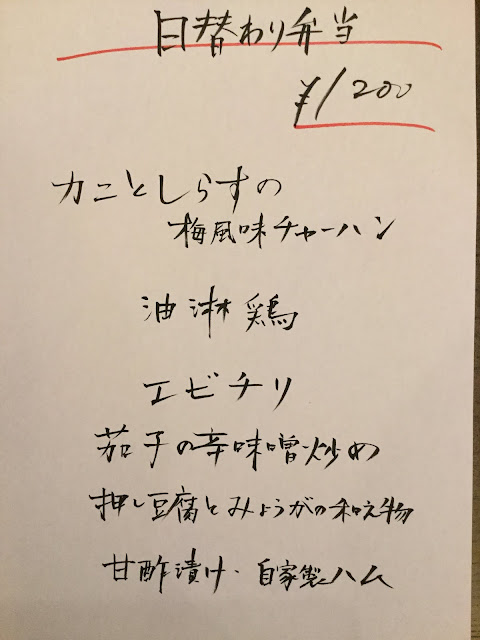 日替わり弁当
¥1200
カニとしらすの
梅風味チャーハン
油淋鶏
エビチリ
茄子の辛味噌炒め
押し豆腐とみょうがの和え物
甘酢漬け・自家製ハム